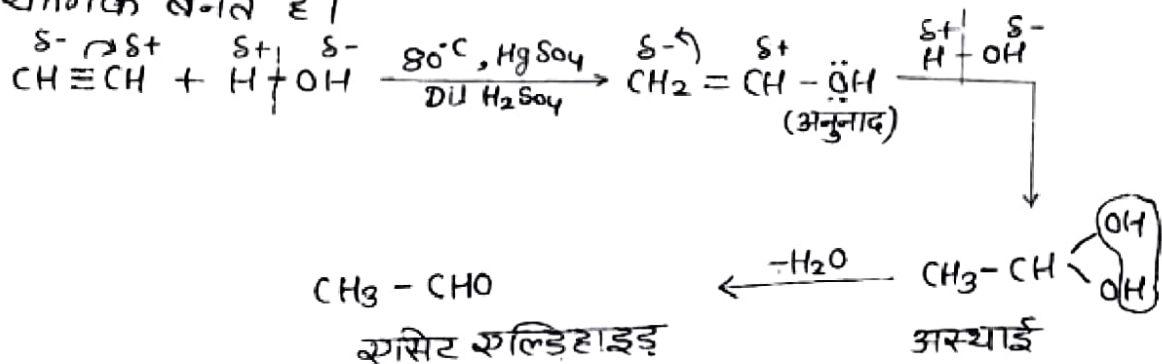 बनते है।
δ- δ+ δ+ δ-
CH ≡ CH + H + OH 80°C, HgSO4 Dil H2SO4 → δ- CH2 = δ+ CH - ÖH δ+ H + δ- OH
(अनुनाद)
CH3 - CHO ← -H2O CH3 - CH OH OH
एसिट एल्डिहाइड़ अस्थाई